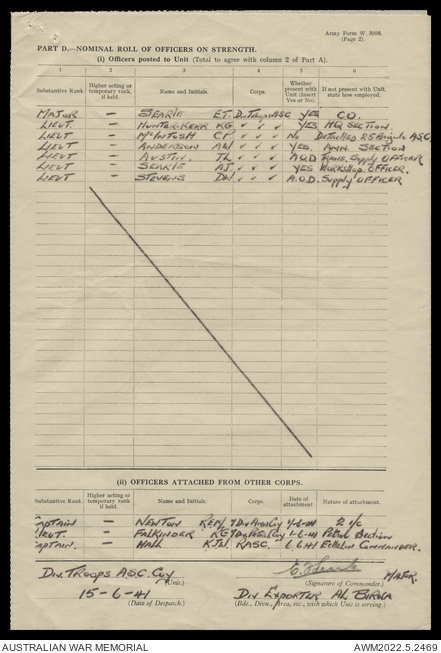 Army Form W. 3008.
(Page 2).
PART D.—NOMINAL ROLL OF OFFICERS ON STRENGTH.
(i) Officers posted to Unit (Total to agree with column 2 of Part A).
1 2 3 4 5 6
Substantive Rank. Higher acting or temporary rank, if held. Name and Initials. Corps. Whether present with Unit (Insert Yes or No). If not present with Unit, state how employed.
MAJOR — SEARLE E.T. Div Troops ASC YES C.O.
LIEUT — HUNTER-KERR KG ✓ ✓ ✓ YES HQ SECTION
LIEUT — McINTOSH CF ✓ ✓ ✓ No DETACHED 25 Brigade ASC
LIEUT — ANDERSON AW ✓ ✓ ✓ YES. AMN. SECTION
LIEUT — AUSTIN. JL ✓ ✓ ✓ AOD TRANS. Supply OFFICER
LIEUT — SEARLE AJ ✓ ✓ ✓ YES WORKSHOP OFFICER.
LIEUT — STEVENS DW ✓ ✓ ✓ A.O.D. Supply OFFICER
(ii) OFFICERS ATTACHED FROM OTHER CORPS.
Substantive Rank. Higher acting or temporary rank, if held. Name and Initials. Corps Date of attachment. Nature of attachment.
CAPTAIN — NEWTON KEM 7 Div Amn Coy 1-6-41 2 i/c
LIEUT. — FALKINDER KG 7 Div Petrol Coy 1-6-41 Petrol Section
CAPTAIN. — HALL RASC 6.6.41 Echelon COMMANDER.
Div. TROOPS A.S.C. Coy (Unit.)
(Signature of Commander.) MAJOR.
15-6-41
(Date of Despatch.)
Div EXPORTER AL BIRWA
(Bde., Divn., Area, etc., with which Unit is serving.)
AUSTRALIAN WAR MEMORIAL
AWM2022.5.2469